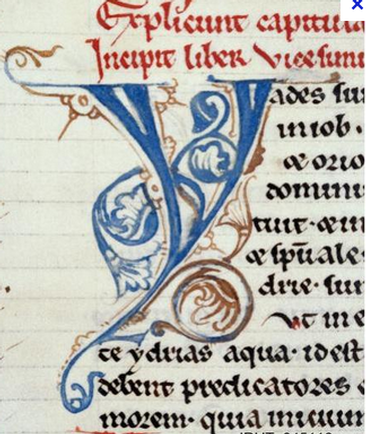 Expliciunt capitula
Incipit liber vicesimu
Y ades su
in iob.
domini
tuit.
spūale
drie. su
Ut in e
te ydrias aqua. id est
debent predicatores
morem. quia inicium